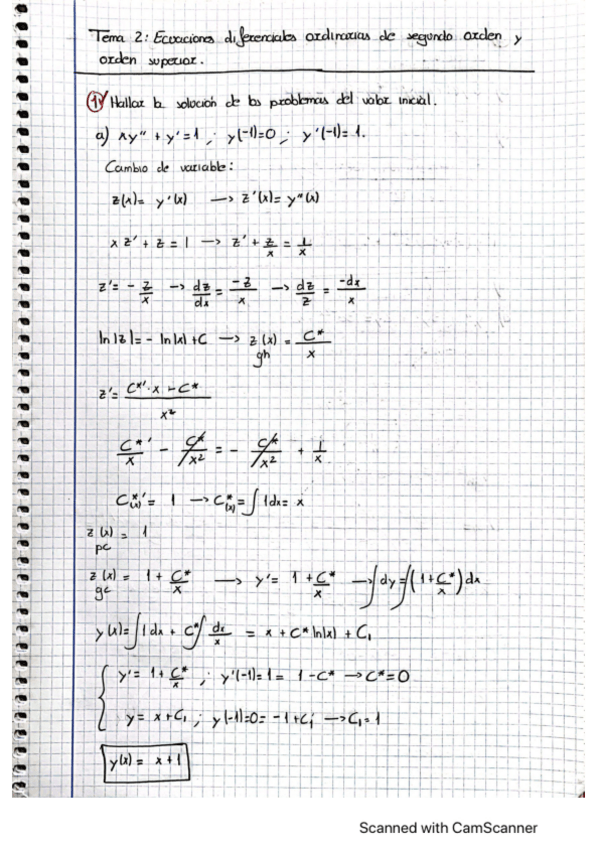 Tema 2: Ecuaciones diferenciales ordinarias de segundo orden y
orden superior.
1) Hallar la solución de los problemas del valor inicial.
a) xy'' + y' = 1 ; y(-1)=0 ; y'(-1)= 1.
Cambio de variable:
z(x)= y'(x) → z'(x)= y''(x)
x z' + z = 1 → z' + z/x = 1/x
z' = - z/x → dz/dx = -z/x → dz/z = -dx/x
ln|z| = - ln|x| + C → z(x) = C*/x
gh
z' = C*'·x - C* / x²
C*'/x - C*/x² = - C*/x² + 1/x
C*'(x) = 1 → C*(x) = ∫ 1dx = x
z(x) = 1
pc
z(x) = 1 + C*/x → y' = 1 + C*/x → ∫dy = ∫(1 + C*/x) dx
gc
y(x) = ∫1 dx + C* ∫ dx/x = x + C* ln|x| + C₁
y' = 1 + C*/x ; y'(-1) = 1 = 1 - C* → C* = 0
y = x + C₁ ; y(-1) = 0 = -1 + C₁ → C₁ = 1
y(x) = x + 1
Scanned with CamScanner